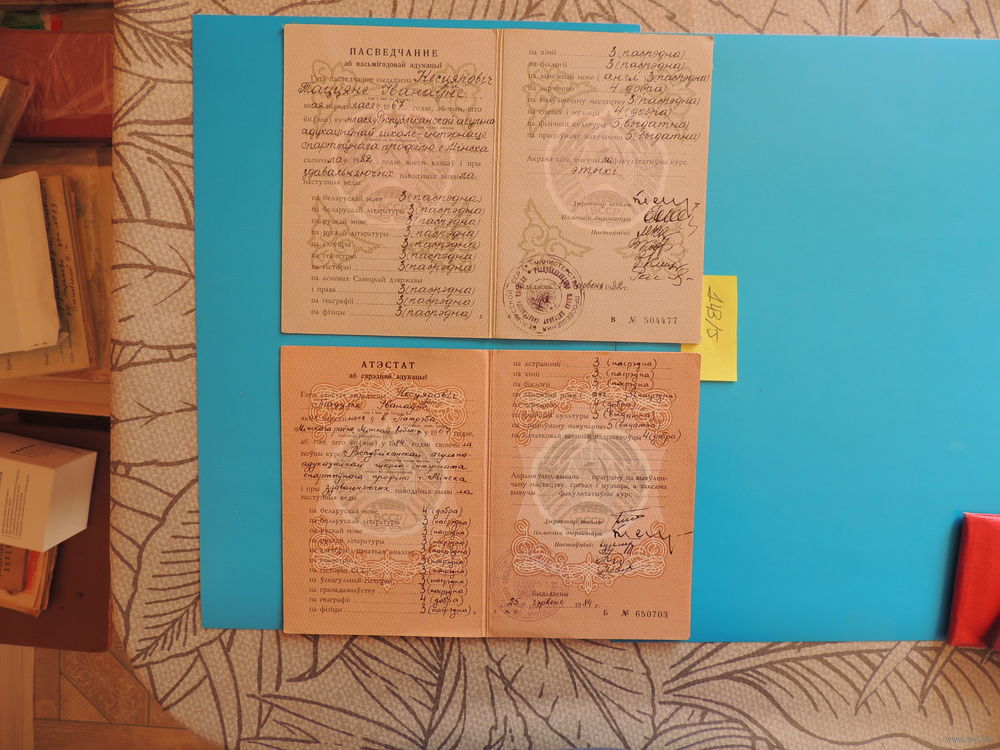 ПАСВЕДЧАННЕ
аб васьмігадовай адукацыі
Гэта пасведчанне выдадзена Несцяровіч
Таццяне Іванаўне
ая нарадзілася ў 1967 годзе, аб тым, што
ён (яна) вучылася ў Рэспубліканскай агульна-
адукацыйнай школе-інтэрнаце
спартыўнага профілю г. Мінска
скончыла ў 1982 годзе восем класаў і пры
здавальняючых паводзінах выявіла
наступныя веды:
па беларускай мове 3 (пасрэдна)
па беларускай літаратуры 3 (пасрэдна)
па рускай мове 3 (пасрэдна)
па рускай літаратуры 3 (пасрэдна)
па алгебры 3 (пасрэдна)
па геаметрыі 3 (пасрэдна)
па гісторыі 3 (пасрэдна)
па асновах Савецкай дзяржавы
і права 3 (пасрэдна)
па геаграфіі 3 (пасрэдна)
па фізіцы 3 (пасрэдна)
па хіміі 3 (пасрэдна)
па біялогіі 3 (пасрэдна)
па замежнай мове (англ.) 3 (пасрэдна)
па чарчэнню 4 (добра)
па выяўленчаму мастацтву 3 (пасрэдна)
па спевах і музыцы 4 (добра)
па фізічнай культуры 5 (выдатна)
па працоўнаму навучанню 5 (выдатна)
Акрамя таго, вывучыла факультатыўны курс
этыкі
Дырэктар школы
Намеснік дырэктара
Настаўнікі:
Выдадзена чэрвеня 1982 г.
В № 504477
АТЭСТАТ
аб сярэдняй адукацыі
Гэты атэстат выдадзены Несцяровіч
Іванаўне
нарадзілася ў в.
Мінскага раёна Мінскай вобласці у 1967 годзе,
аб тым, што ён (яна) у 1984 годзе скончыла
поўны курс Рэспубліканскай агульна-
адукацыйнай школы-інтэрната
спартыўнага профілю г. Мінска
і пры здавальняючых паводзінах выявіла
наступныя веды
па беларускай мове 4 (добра)
па беларускай літаратуры 3 (пасрэдна)
па рускай мове 3 (пасрэдна)
па рускай літаратуры 3 (пасрэдна)
па алгебры і пачатках аналізу 3 (пасрэдна)
па геаметрыі 3 (пасрэдна)
па гісторыі СССР 3 (пасрэдна)
па ўсеагульнай гісторыі 3 (пасрэдна)
па грамадазнаўству 3 (пасрэдна)
па геаграфіі 4 (добра)
па фізіцы 3 (пасрэдна)
па астраноміі 3 (пасрэдна)
па хіміі 3 (пасрэдна)
па біялогіі 3 (пасрэдна)
па замежнай мове (пасрэдна)
4 (добра)
па фізічнай культуры 5 (выдатна)
па працоўнаму навучанню 5 (выдатна)
па пачатковай ваеннай падрыхтоўцы 4 (добра)
Акрамя таго, выканала праграму па выяўлен-
чаму мастацтву, спевах і музыцы, а таксама
вывучыла факультатыўны курс
Дырэктар школы
Намеснік дырэктара
Настаўнікі:
Выдадзены
25 чэрвеня 1984 г.
Б № 650703